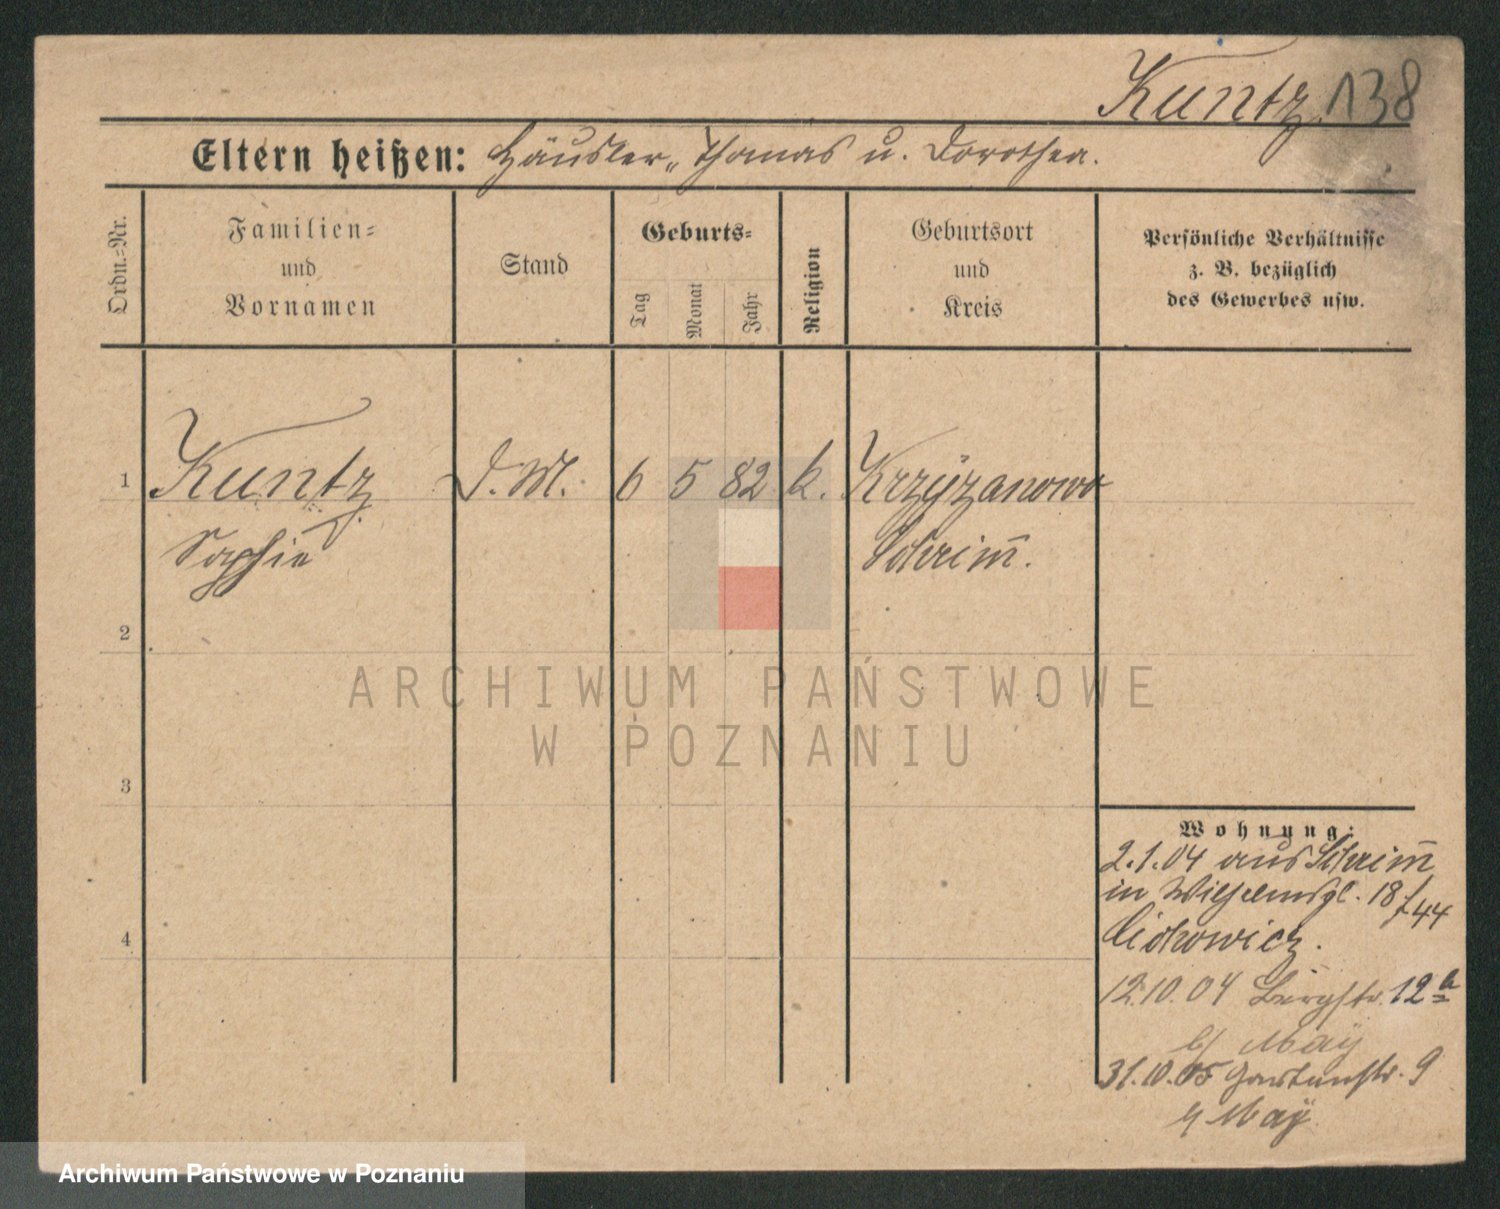 Kuntz. 138
Eltern heißen: Häusler, Thomas u. Dorothea.
Ordn.-Nr.
Familien-
und
Vornamen
Stand
Geburts-
Tag
Monat
Jahr
Religion
Geburtsort
und
Kreis
Persönliche Verhältnisse
z. B. bezüglich
des Gewerbes usw.
1 Kuntz D.M. 6 5 82 k. Krzÿzanowo
Sophie Schrim̄.
2
ARCHIWUM PAŃSTWOWE
W POZNANIU
3
Wohnung:
2.1.04 aus Schrim̄
in Wilhelmspl. 18
4
Cichowicz.
12.10.04 Bergstr. 12
b/ Maÿ
31.10.05 Gartenstr. 9
b/ Maÿ
Archiwum Państwowe w Poznaniu